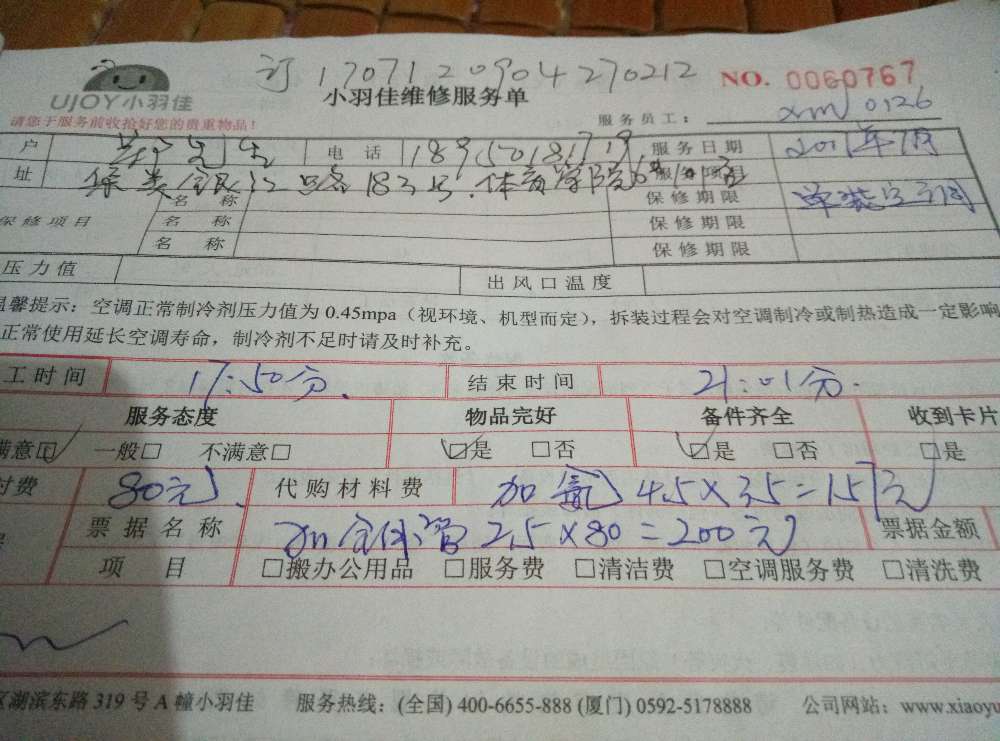 订 1707120904270212 NO. 0060767
UJOY小羽佳 小羽佳维修服务单
请您于服务前收拾好您的贵重物品! 服务员工: xm 0126
户 先生 电话 18950181719 服务日期 年7月
址 银江路183号.体育学院 单装空调
保修项目 名称 保修期限
名称 保修期限
名称 保修期限
压力值 出风口温度
温馨提示:空调正常制冷剂压力值为 0.45mpa(视环境、机型而定),拆装过程会对空调制冷或制热造成一定影响
正常使用延长空调寿命,制冷剂不足时请及时补充。
工时间 17:50分. 结束时间 21:01分.
服务态度 物品完好 备件齐全 收到卡片
满意☑ 一般□ 不满意□ ☑是 □否 ☑是 □否 □是
付费 80元. 代购材料费 加氟 4.5×35=157元
票据名称 加 管 2.5×80=200元 票据金额
项目 □搬办公用品 □服务费 □清洁费 □空调服务费 □清洗费
区湖滨东路 319 号 A 幢小羽佳 服务热线:(全国) 400-6655-888 (厦门) 0592-5178888 公司网站:www.xiaoyu